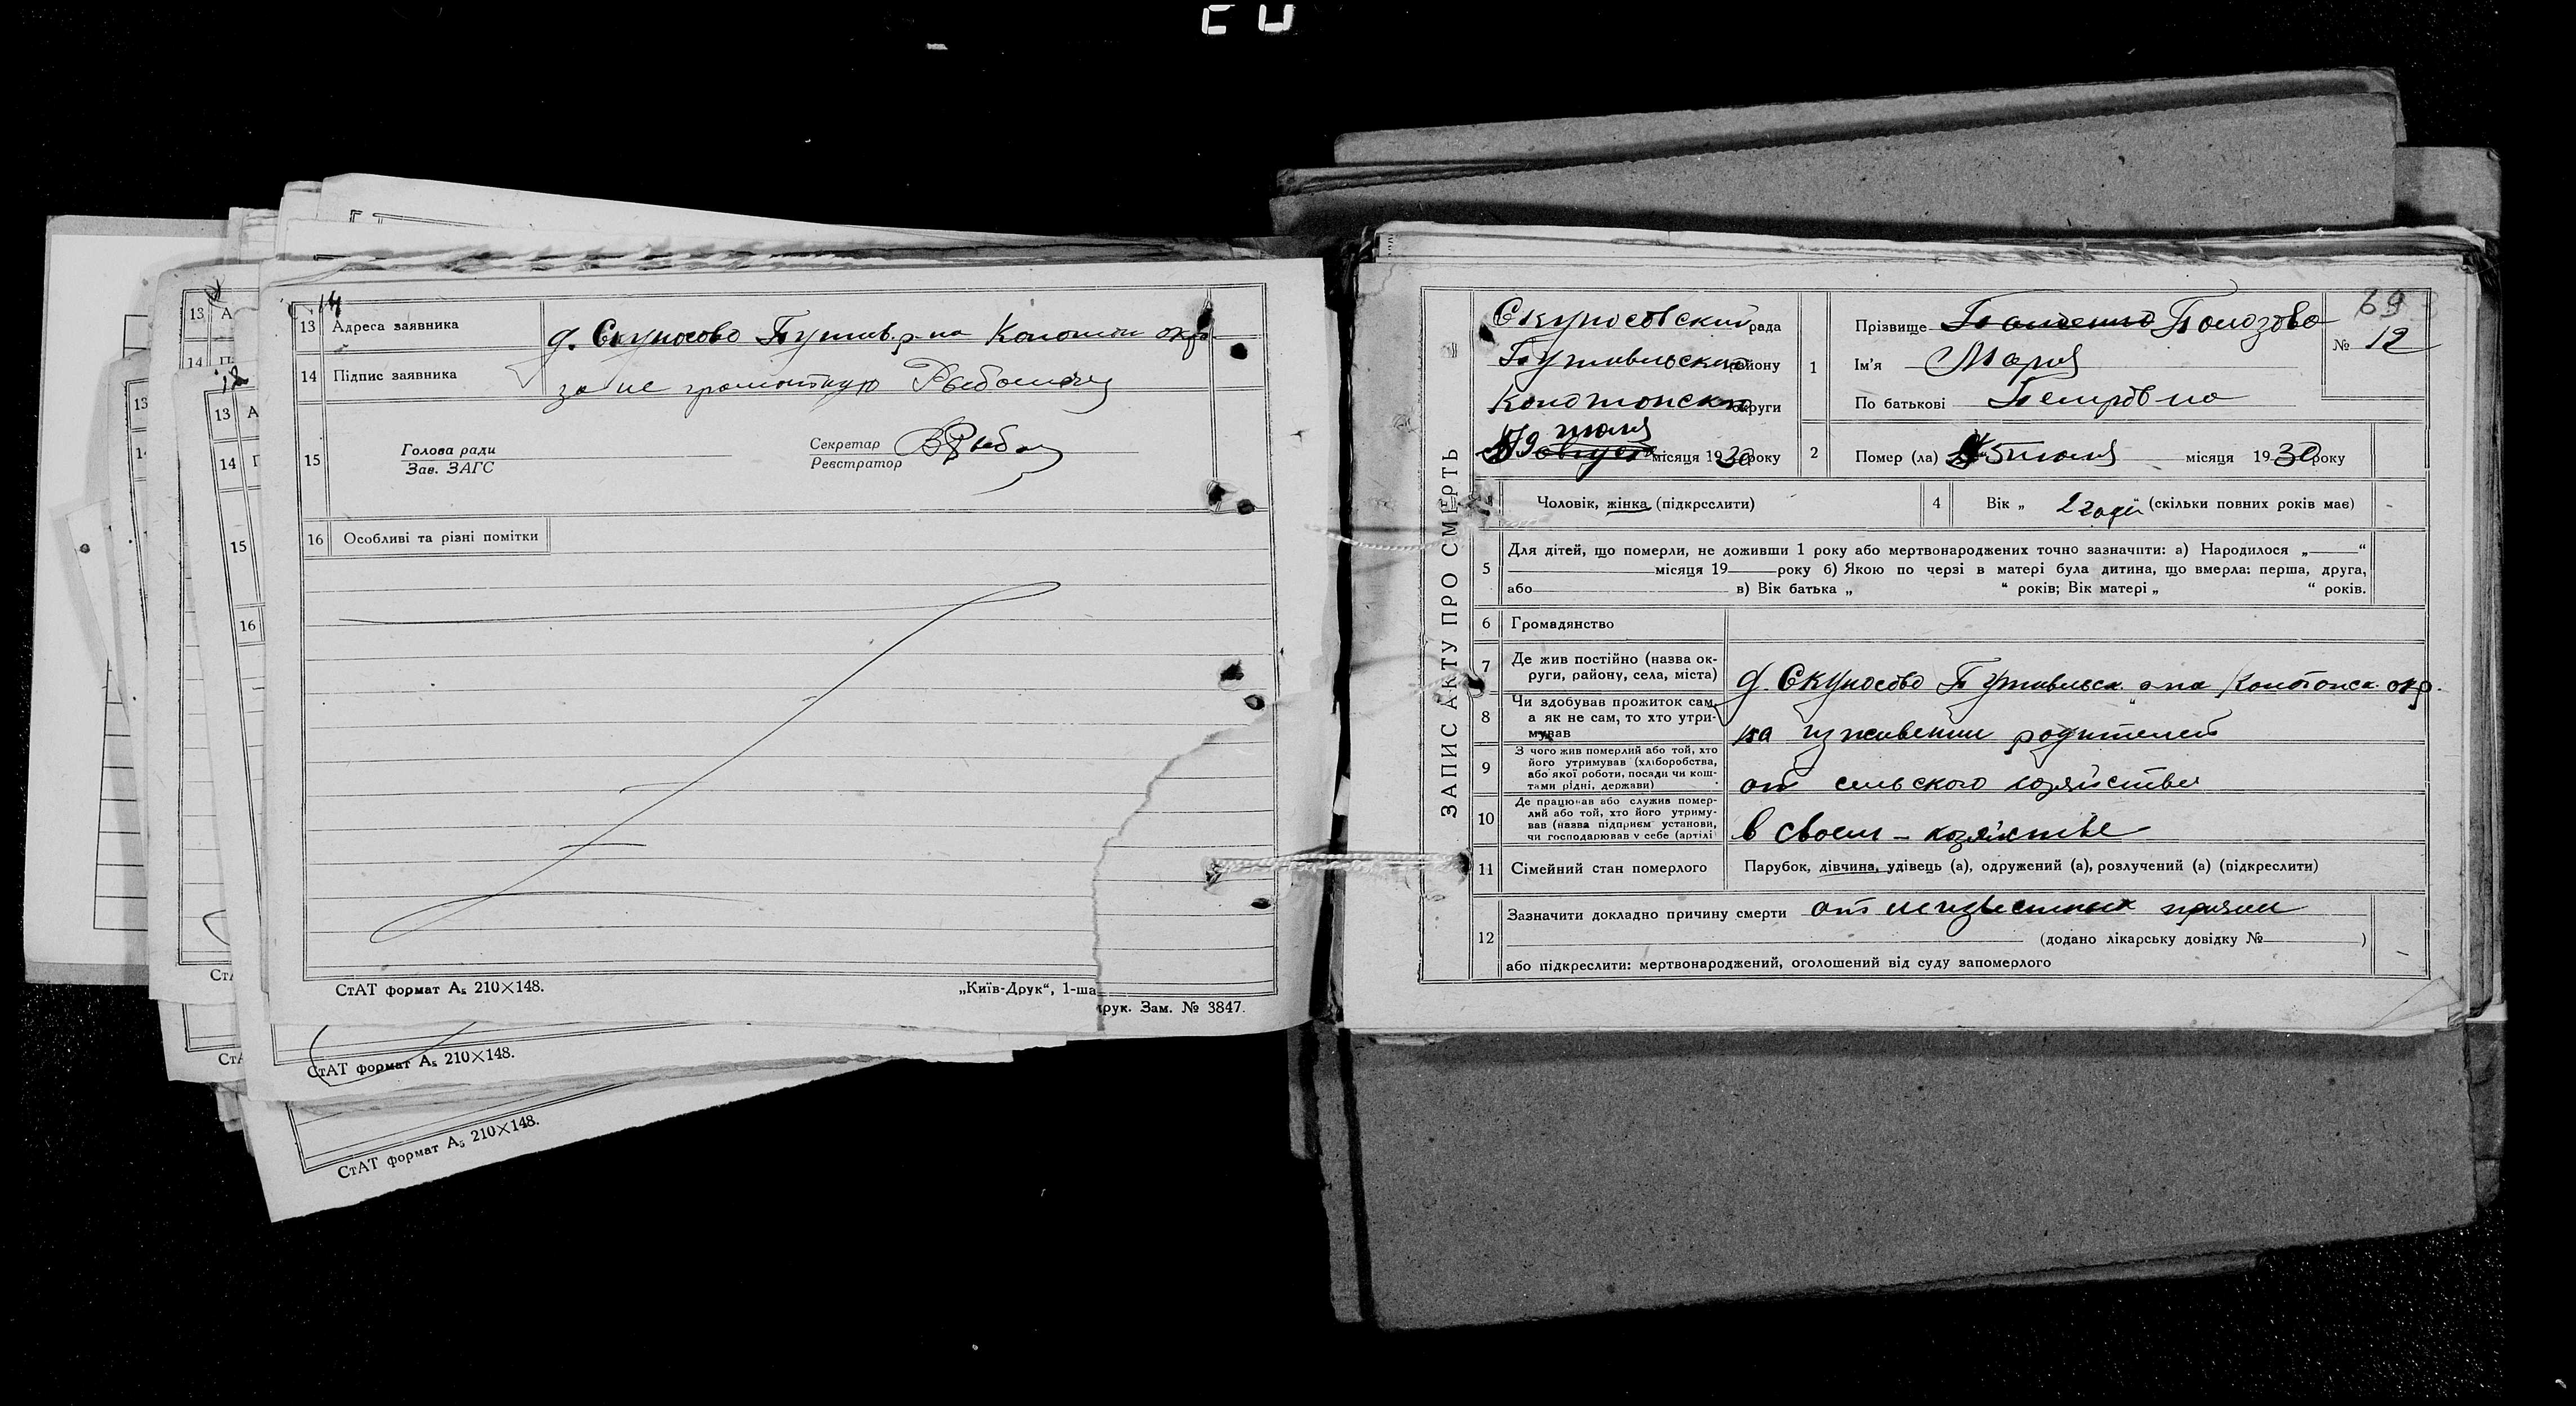 13 Адреса заявника д. Скуносово Путив. р-на Конотоп окр.
14 Підпис заявника за не грамотную
15 Голова ради
Зав. ЗАГС
Секретар
Реєстратор
16 Особливі та різні помітки
СтАТ формат А₅ 210×148.
„Київ-Друк“, 1-ша
друк. Зам. № 3847.
СтАТ формат А₅ 210×148.
СтАТ формат А₅ 210×148.
ЗАПИС АКТУ ПРО СМЕРТЬ
69
Скуносовский рада
Путивльский району
Конотопский округи
19 июля августа місяця 1930 року
1 Прізвище Полозова
№ 12
Ім'я Мария
По батькові Петровна
2 Помер (ла) 5 июля місяця 1930 року
Чоловік, жінка (підкреслити)
4 Вік „ 2 года “ (скільки повних років має)
5 Для дітей, що померли, не доживши 1 року або мертвонароджених точно зазначити: а) Народилося „ “
місяця 19 року б) Якою по черзі в матері була дитина, що вмерла: перша, друга,
або в) Вік батька „ “ років; Вік матері „ “ років.
6 Громадянство
7 Де жив постійно (назва ок-
руги, району, села, міста) д. Скуносово Путивльск. р-на Конотопск. окр.
8 Чи здобував прожиток сам,
а як не сам, то хто утри-
мував на иждивении родителей
9 З чого жив померлий або той, хто
його утримував (хліборобства,
або якої роботи, посади чи кош-
тами рідні, держави) от сельского хозяйства
10 Де працював або служив помер-
лий або той, хто його утриму-
вав (назва підприєм установи,
чи господарював у себе (артілі в своем - хозяйстве
11 Сімейний стан померлого Парубок, дівчина, удівець (а), одружений (а), розлучений (а) (підкреслити)
12 Зазначити докладно причину смерти от неизвестных причин
(додано лікарську довідку № )
або підкреслити: мертвонароджений, оголошений від суду запомерлого